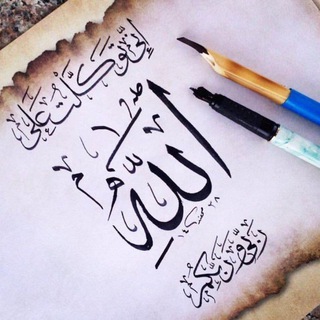 إني توكلت على
الله
ربي وربكم